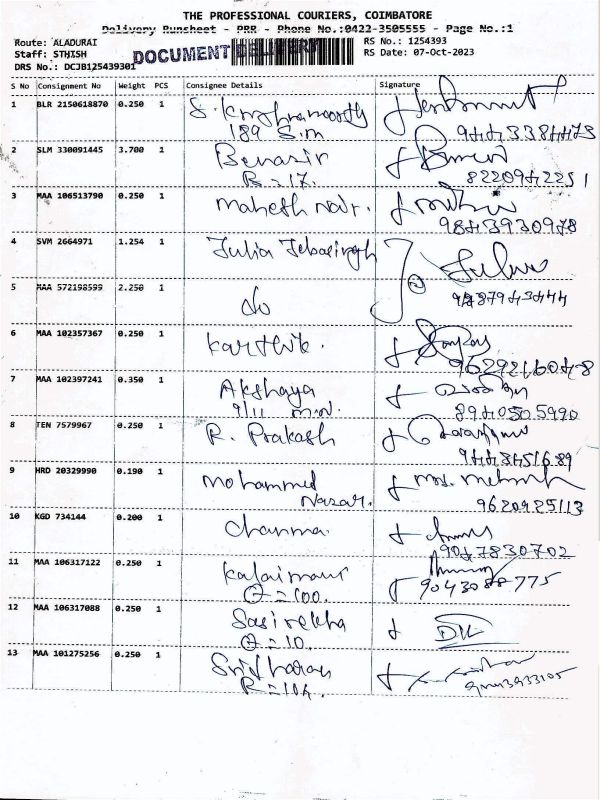 THE PROFESSIONAL COURIERS, COIMBATORE
Delivery Runsheet - PRR - Phone No.:0422-3505555 - Page No.:1
Route: ALADURAI
RS No.: 1254393
Staff: STHISH
DOCUMENT DELIVERY
RS Date: 07-Oct-2023
DRS No.: DCJB125439301
S No Consignment No Weight PCS Consignee Details Signature
1 BLR 2150618870 0.250 1 S. Krishnamoorthy
189 S.m
2 SLM 330091445 3.700 1 Benasir
B=17.
8220942251
3 MAA 106513790 0.250 1 Mahesh Nair.
9843930978
4 SVM 2664971 1.254 1 Julia Jebasingh
5 MAA 572198599 2.250 1 do
6 MAA 102357367 0.250 1 Karthik.
9629216048
7 MAA 102397241 0.350 1 Akshaya
9/11 m.n.
8940505990
8 TEN 7579967 0.250 1 R. Prakash
9 HRD 20329990 0.190 1 Mohammed
Nazar.
9620925113
10 KGD 734144 0.200 1 Chanma.
9047830702
11 MAA 106317122 0.250 1 Kalaimani
=100.
9043088775
12 MAA 106317088 0.250 1 Sasirekha
=10.
13 MAA 101275256 0.250 1 Sridharan
R=10A.